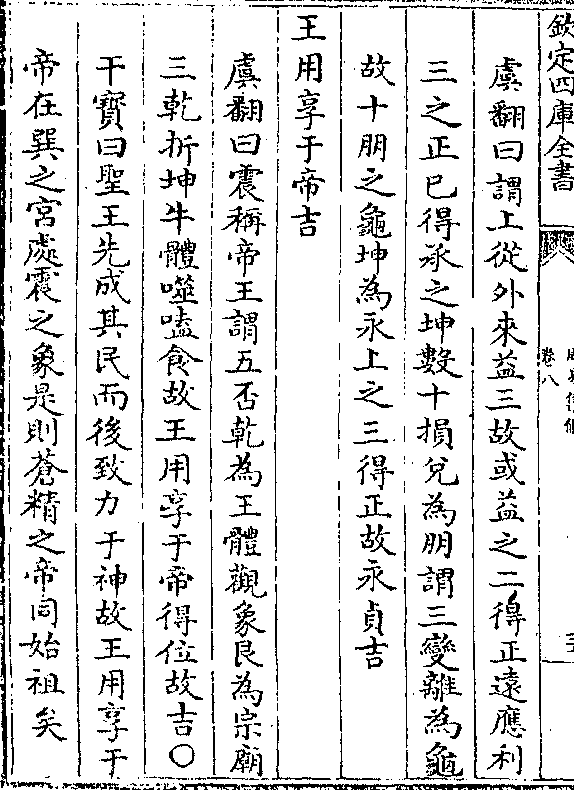 欽定四庫全書
卷八
虞翻曰謂上從外來益三故或益之二得正遠應利
三之正已得承之坤數十損兌為朋謂三變離為龜
故十朋之龜坤為永上之三得正故永貞吉
王用享于帝吉
虞翻曰震稱帝王謂五否乾為王體觀象艮為宗廟
三乾折坤牛體噬嗑食故王用享于帝得位故吉〇
干寶曰聖王先成其民而後致力于神故王用享于
帝在巽之宮處震之象是則蒼精之帝同始祖矣